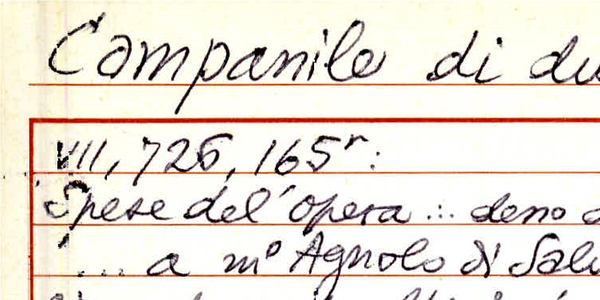 Campanile di du
VII, 726, 165r:
Spese del'opera ... deno
... a m° Agnolo di Salv